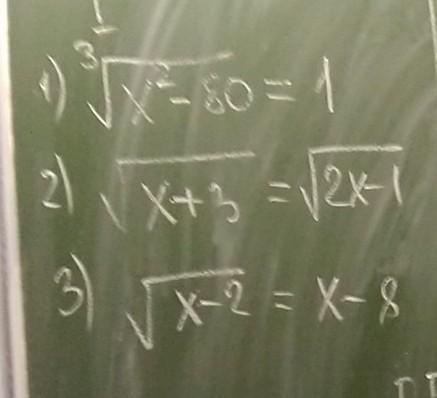 1) ∛(x²-80) = 1
2) √(x+3) = √(2x-1)
3) √(x-2) = x-8